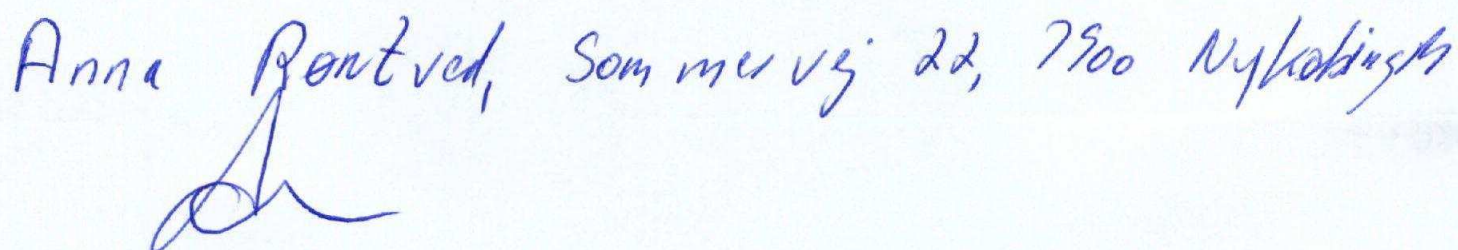 Anna Røntved, Sommervej 22, 7900 Nykøbing M